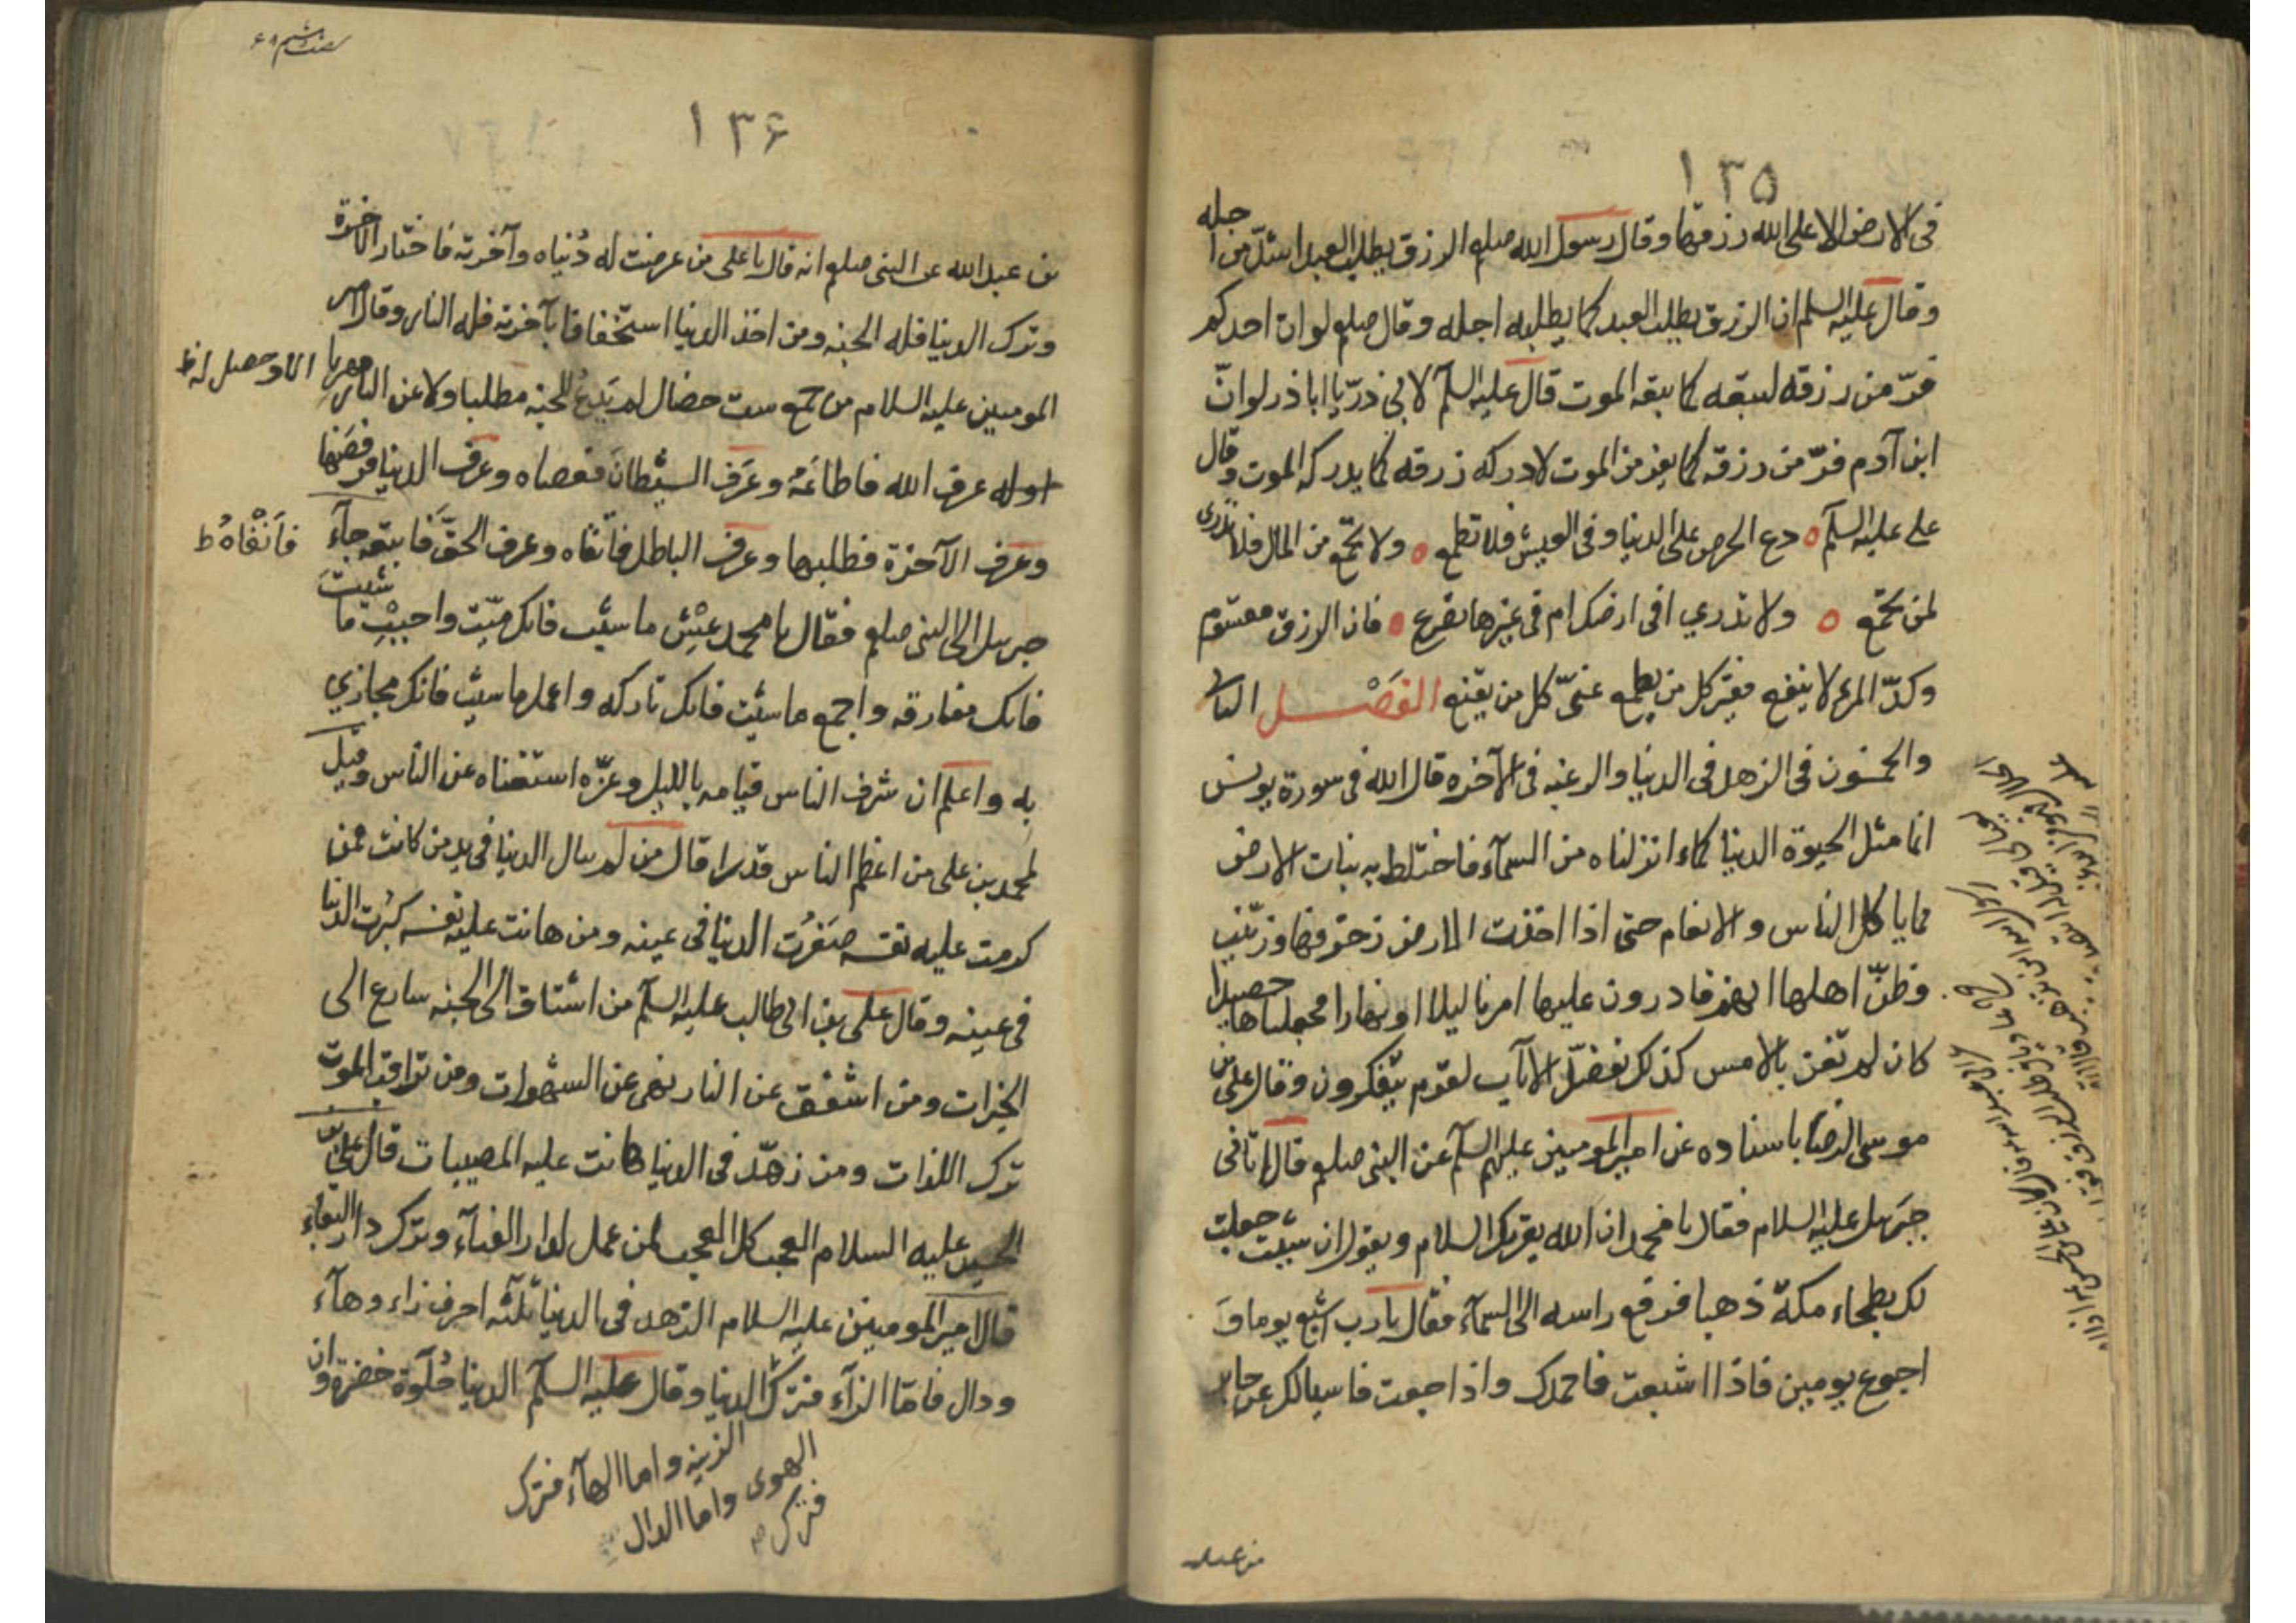 ١٣٥
فى الارض الا على الله رزقها وقال رسول الله صلعم الرزق يطلب العبد اشدّ من اجله
وقال عليه السلم ان الرزق يطلب العبد كما يطلبه اجله وقال صلعم لو ان احدكم
فرّ من رزقه لتبعه كما يتبعه الموت قال عليه السلم لابى ذرّ يا اباذر لو انّ
ابن آدم فرّ من رزقه كما يفر من الموت لادركه رزقه كما يدركه الموت وقال
على عليه السلم دع الحرص على الدنيا وفى العيش فلا تطمع ولا تجمع من المال فلا تدرى
لمن تجمع ولا تدري افى ارضك ام فى غيرها تصرع فان الرزق مقسوم
وكدّ المرء لا ينفع فقير كل من يطمع غنىّ كل من يقنع الفصل الثانى
والخمسون فى الزهد فى الدنيا والرغبه فى الآخره قال الله فى سورة يونس
انما مثل الحيوة الدنيا كماء انزلناه من السمآء فاختلط به نبات الارض
مما ياكل الناس والانعام حتى اذا اخذت الارض زخرفها وزيّنت
وظنّ اهلها انهم قادرون عليها امرنا ليلا او نهارا فجعلناها حصيدا
كان لم تغن بالامس كذلك نفصّل الآيات لقوم يتفكرون وقال على بن
موسى الرضا باسناده عن امير المومنين عليهم السلم عن النبى صلعم قال اتانى
جبرئيل عليه السلام فقال يا محمد ان الله يقرئك السلام ويقول ان شئت جعلت
لك بطحاء مكة ذهبا فرفع راسه الى السمآء فقال يا رب اشبع يوما وَ
اجوع يومين فاذا اشبعت فاحمدك واذا جعت فاسالك عن جابر
١٣۶
بن عبد الله عن النبى صلعم انه قال يا على من عرضت له دُنياه وآخرته فاختار الآخرة
وترك الدنيا فله الجنه ومن اخذ الدنيا استخفافا بآخرته فله النار وقال امير
المومنين عليه السلام من جمع ست خصال لم يَدَعْ للجنه مطلبا ولا عن النار مهربا
اوله عرف الله فاطاعَهُ وعَرَف الشيطانَ فعصاه وعرف الدنيا فرفضَها
وعَرف الآخرة فطلبها وعرف الباطل فاتّقاه وعرف الحقّ فاتبعه جآء
فَاَنْفَاهُ ط
جبرئيل الى النبى صلعم فقال يا محمد عِيْش ما شئت فانك ميّت واحبِبْ ما شئت
فانك مفارقه واجمع ما شئت فانك تاركه واعمل ما شئت فانك مجازي
بِه واعلم ان شرف الناس قيامه بالليل وعزّه استغناه عن الناس وقيل
لمحمد بن على من اعظم الناس قدرا قال من لم يبال الدنيا فى يد من كانت فمن
كرمت عليه نفسه صَغرُت الدنيا فى عينه ومن هانت عليه نفسه كبُرت الدنيا
فى عينه وقال على بن ابى طالب عليه السلم من اشتاق الى الجنه سارع الى
الخيرات ومن اشفق عن النار نهى عن الشهوات ومن تراقب الموت
ترك اللذات ومن زهّد فى الدنيا هانت عليه المصيبات قال على بن
الحسين عليه السلام العجب كل العجب لمن عمل لدار الفنآء وترك دار البقاء
قال امير المومنين عليه السلام الزهد فى الدنيا ثلثه احرف زاء وهآء
ودال فامّا الزآء فترك الدنيا وقال عليه السلم الدنيا حُلْوَة خضرة وان
الزينه واما الهآء فترك
الهوى واما الدال
فترك